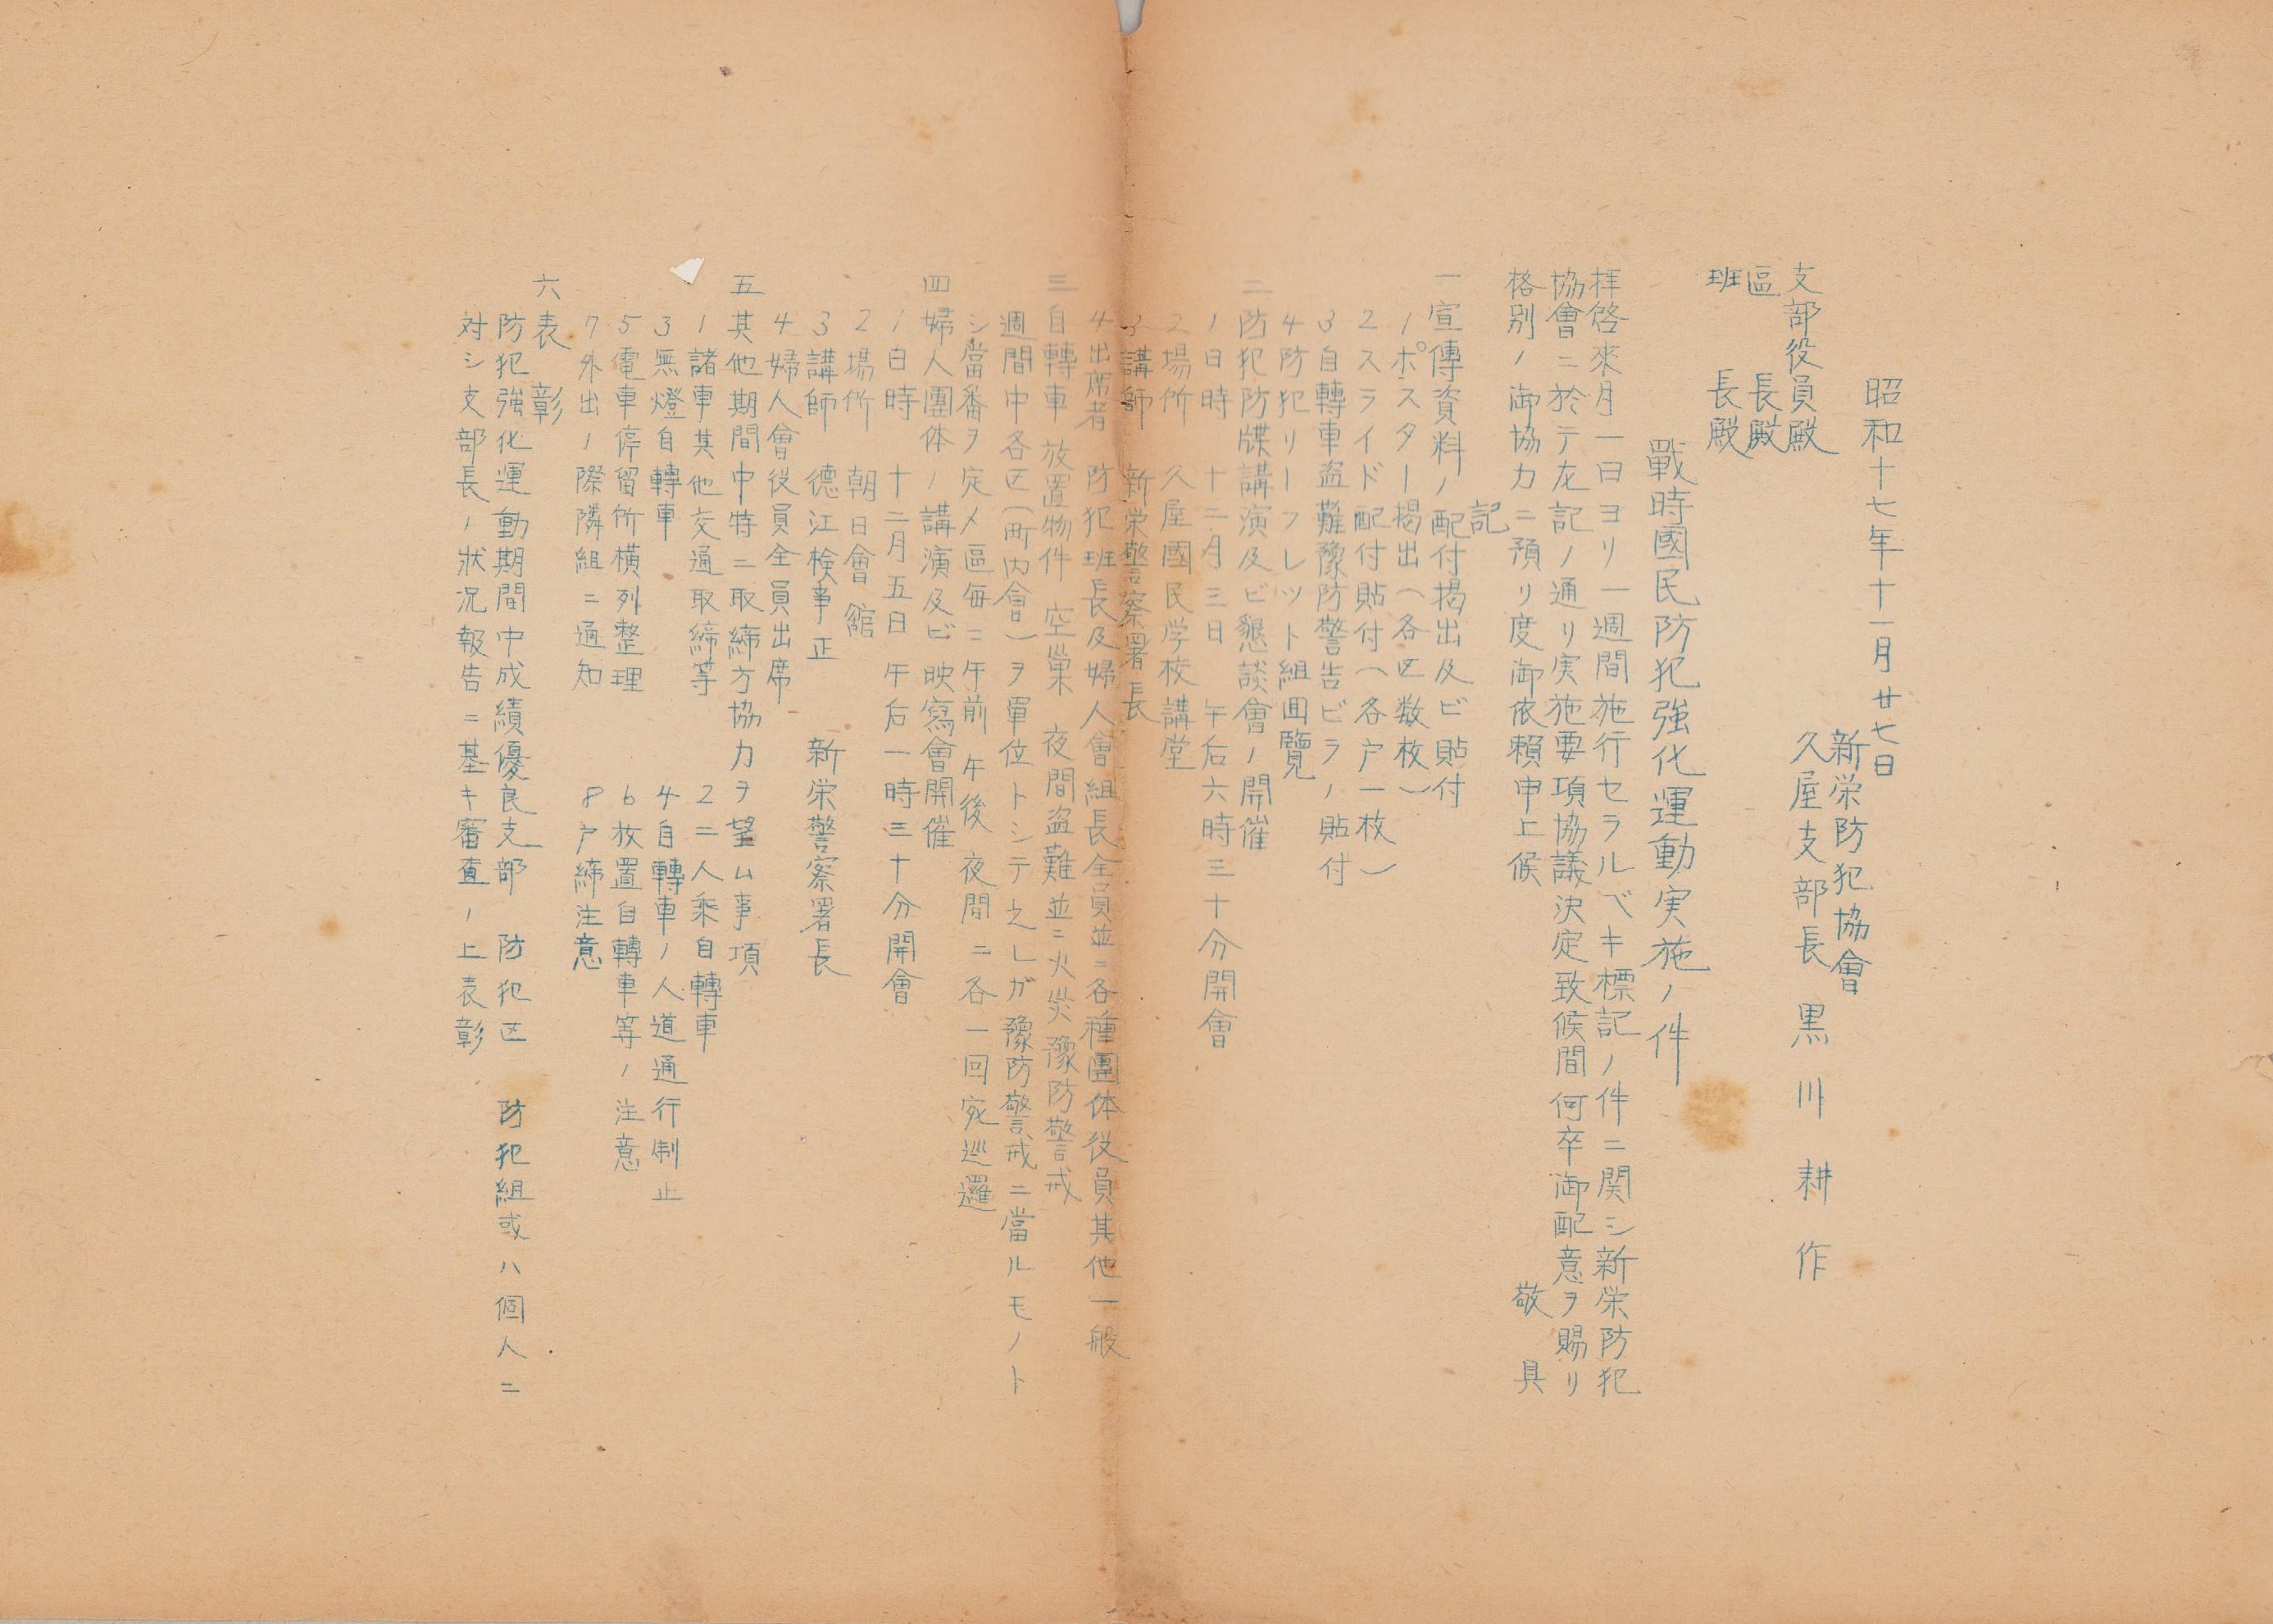 昭和十七年十一月廿七日
新栄防犯協會
久屋支部長 黒川耕作
支部役員殿
區長殿
班長殿
戰時國民防犯強化運動実施ノ件
拝啓來月一日ヨリ一週間施行セラルベキ標記ノ件ニ関シ新栄防犯
協會ニ於テ左記ノ通リ実施要項協議決定致候間何卒御配意ヲ賜リ
格別ノ御協力ニ預リ度御依賴申上候 敬具
記
一 宣傳資料ノ配付掲出及ビ貼付
1 ポスター掲出(各区数枚)
2 スライド配付貼付(各户一枚)
3 自轉車盗難豫防警告ビラノ貼付
4 防犯リーフレット組囬覽
二 防犯防牒講演及ビ懇談會ノ開催
1 日時 十二月三日 午后六時三十分開會
2 場所 久屋國民学校講堂
3 講師 新栄警察署長
4 出席者 防犯班長及婦人會組長全員並ニ各種團体役員其他一般
三 自轉車 放置物件 空巣 夜間盗難並ニ火災豫防警戒
週間中各区(町内會)ヲ單位トシテ之レガ豫防警戒ニ當ルモノト
シ當番ヲ定メ區毎ニ午前 午後 夜間ニ各一回宛巡邏
四 婦人團体ノ講演及ビ映寫會開催
1 日時 十二月五日 午后一時三十分開會
2 場所 朝日會舘
3 講師 德江検事正 新栄警察署長
4 婦人會役員全員出席
五 其他期間中特ニ取締方協力ヲ望ム事項
1 諸車其他交通取締等 2 二人乘自轉車
3 無燈自轉車 4 自轉車ノ人道通行制止
5 電車停留所横列整理 6 放置自轉車等ノ注意
7 外出ノ際隣組ニ通知 8 户締注意
六 表彰
防犯強化運動期間中成績優良支部 防犯区 防犯組或ハ個人ニ
対シ支部長ノ狀况報告ニ基キ審査ノ上表彰